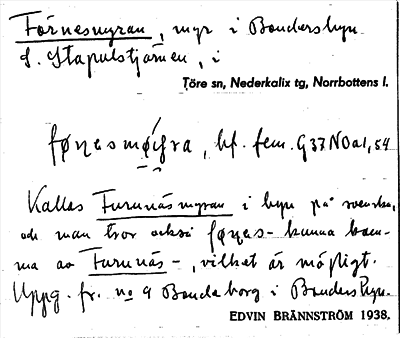 Förnesmyran, myr i Bondersbyn
S. Stapulstjärnen, i
Töre sn, Nederkalix tg, Norrbottens l.
fø̣ṇesmø̣i̯ra, bf. fem. G37N0a1,54
Kallas Furunäsmyran i byn på svenska,
och man tror också fø̣ṇes- kunna kom-
ma av Furunäs-, vilket är möjligt.
Uppg. fr. no 9 Bondeborg i Bondersbyn.
EDVIN BRÄNNSTRÖM 1938.